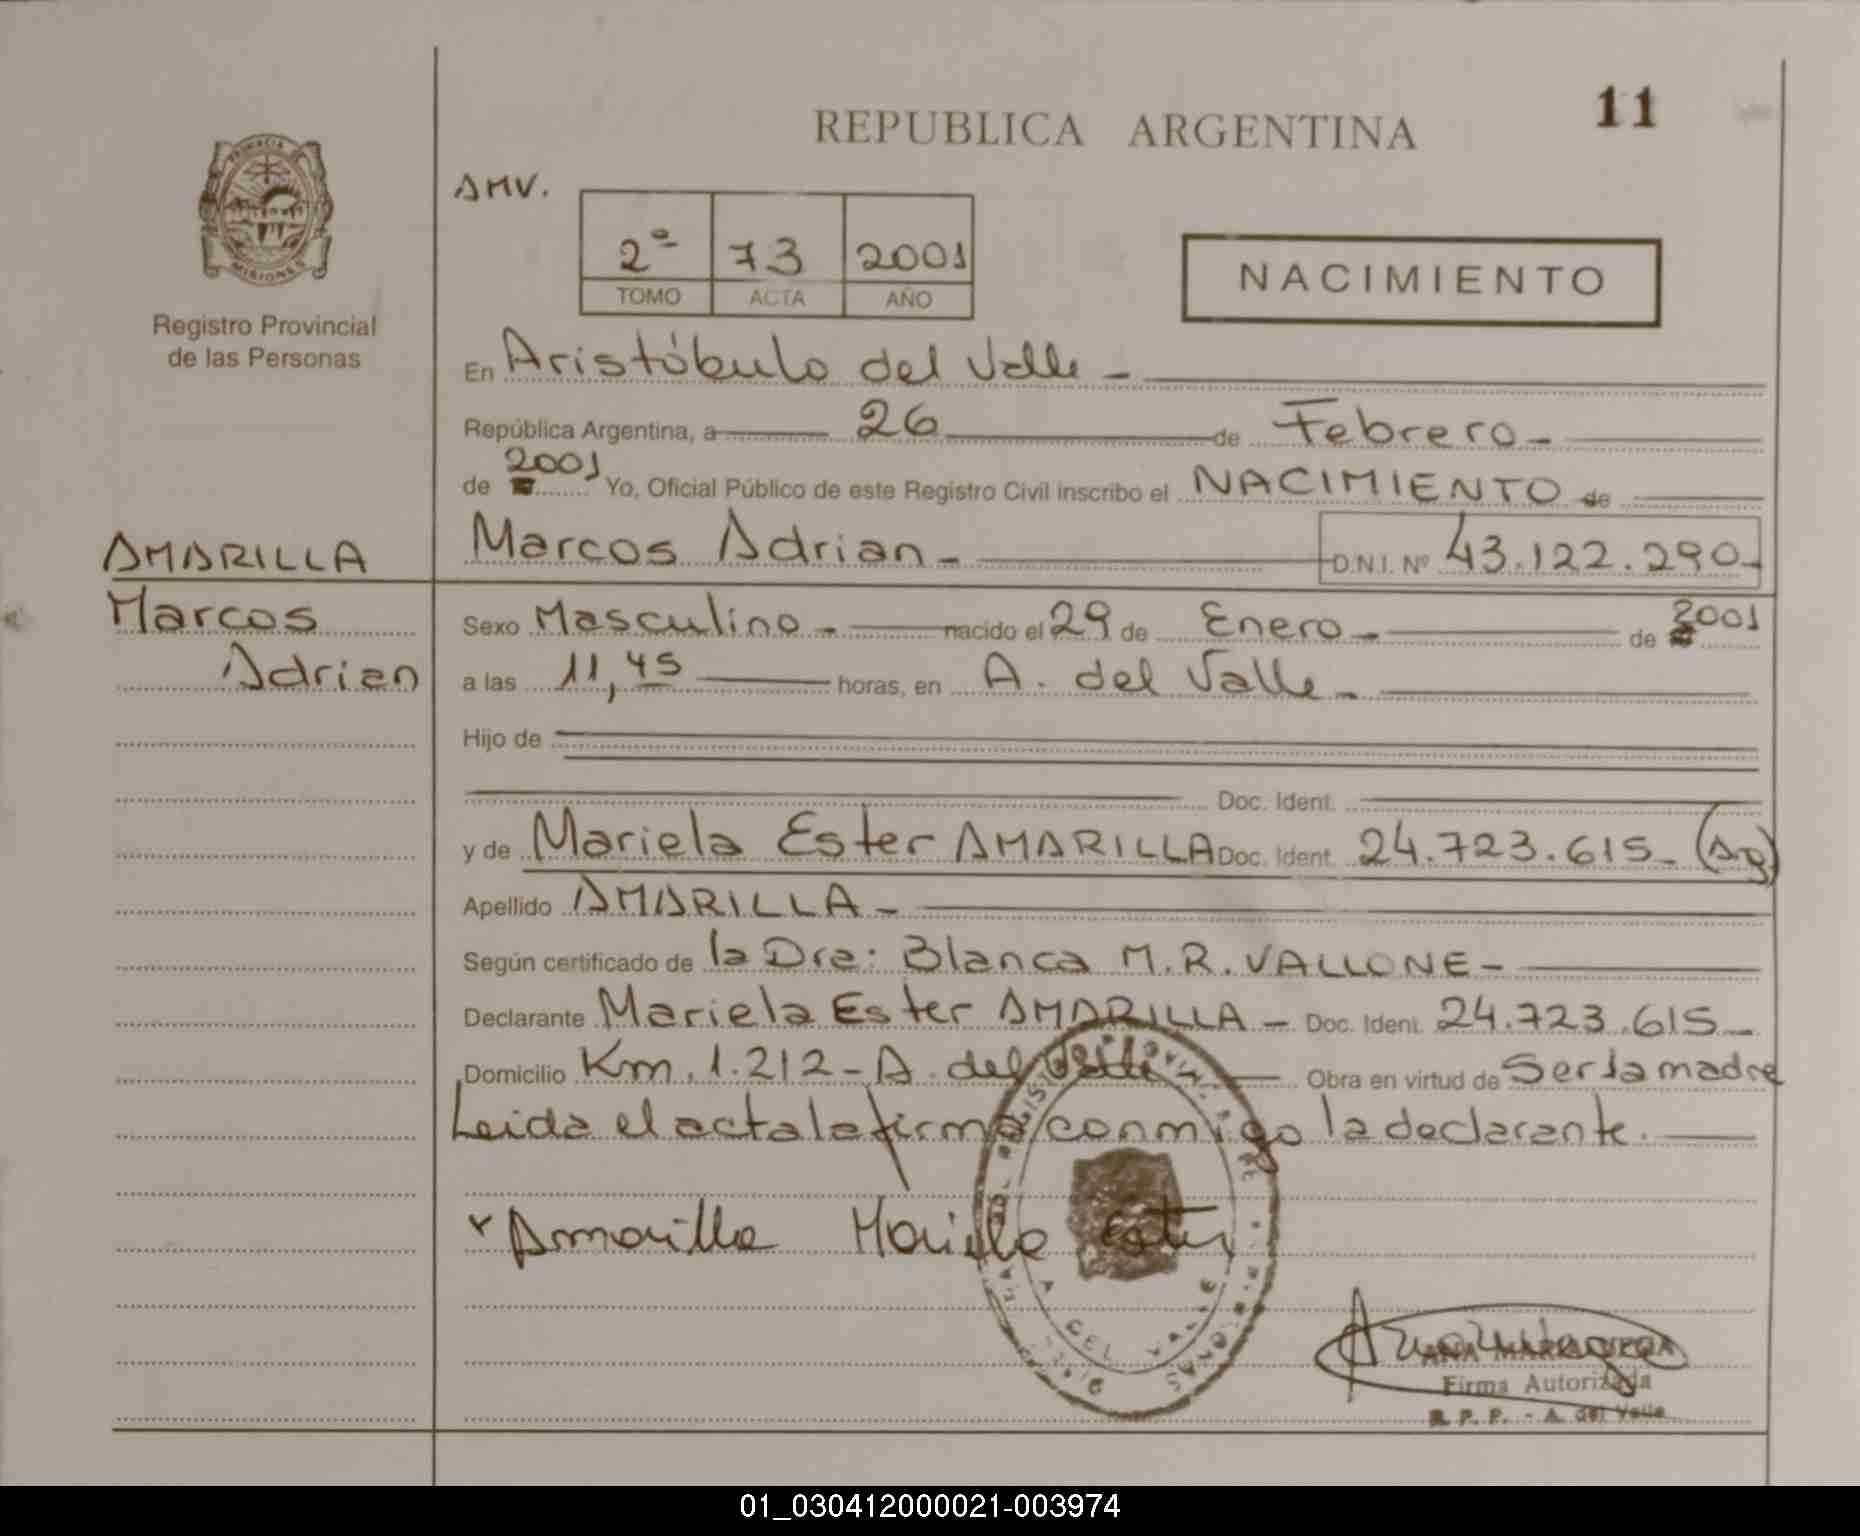 REPUBLICA ARGENTINA
11
PROVINCIA DE
MISIONES
Registro Provincial
de las Personas
AMV.
2º 73 2001
TOMO ACTA AÑO
NACIMIENTO
En Aristóbulo del Valle -
República Argentina, a 26 de Febrero -
de 2001 Yo, Oficial Público de este Registro Civil inscribo el NACIMIENTO de
AMARILLA
Marcos
Adrian
Marcos Adrian - D.N.I. Nº 43.122.290-
Sexo Masculino - nacido el 29 de Enero - de 2001
a las 11,45 horas, en A. del Valle -
Hijo de
Doc. Ident.
y de Mariela Ester AMARILLA Doc. Ident. 24.723.615- (Ag)
Apellido AMARILLA -
Según certificado de la Dra: Blanca M.R. VALLONE -
Declarante Mariela Ester AMARILLA - Doc. Ident. 24.723.615-
Domicilio Km. 1.212 - A. del Valle Obra en virtud de Ser la madre
Leida el acta la firma conmigo la declarante.
x Amarilla Mariela Ester
A. DEL VALLE
ANA MARIA VEGA
Firma Autorizada
R. P. P. - A. del Valle
01_030412000021-003974